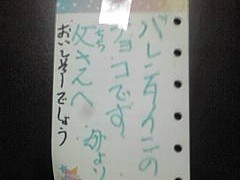 バレンタインの
チョコです
父さんへ
よより
おいしそーでしょう